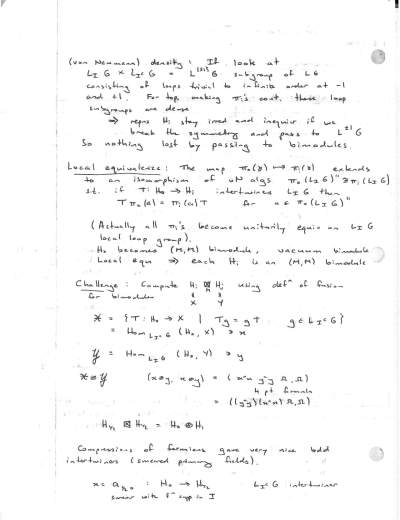 (von Neumann) density : If look at
L_I G × L_{I^c} G = L^{±1} G subgroup of LG
consisting of loops trivial to infinite order at -1
and +1. For top. making π_i's cont, these loop
subgroups are dense
⇒ repns H_i stay irred and inequiv if we
break the symmetry and pass to L^{±1} G
So nothing lost by passing to bimodules.
Local equivalence : The map π_0(g) ↦ π_i(g) extends
to an isomorphism of vN algs π_0(L_I G)'' ≅ π_i(L_I G)''
s.t. if T: H_0 → H_i intertwines L_I G then
T π_0(a) = π_i(a) T for a ∈ π_0(L_I G)''
(Actually all π_i's become unitarily equiv on L_I G
local loop group).
H_0 becomes (M,M) bimodule, vacuum bimodule
Local equn ⇒ each H_i is an (M,M) bimodule
Challenge : Compute H_i ⊠ H_j using def^n of fusion
for bimodules X Y
𝒳 = { T : H_0 → X | Tg = gT g ∈ L_{I^c} G }
= Hom_{L_{I^c} G} (H_0, X) ∋ x
𝒴 = Hom_{L_I G} (H_0, Y) ∋ y
𝒳 ⊗ 𝒴 (x⊗y, x⊗y) = (x*x y*y Ω, Ω)
4 pt formula
= ((y*y)(x*x) Ω, Ω)
H_{1/2} ⊠ H_{1/2} = H_0 ⊕ H_1
Compressions of fermions gave very nice bdd
intertwiners (smeared primary fields).
x = a_{½0} : H_0 → H_{1/2} L_{I^c} G intertwiner
smear with f^n supp in I